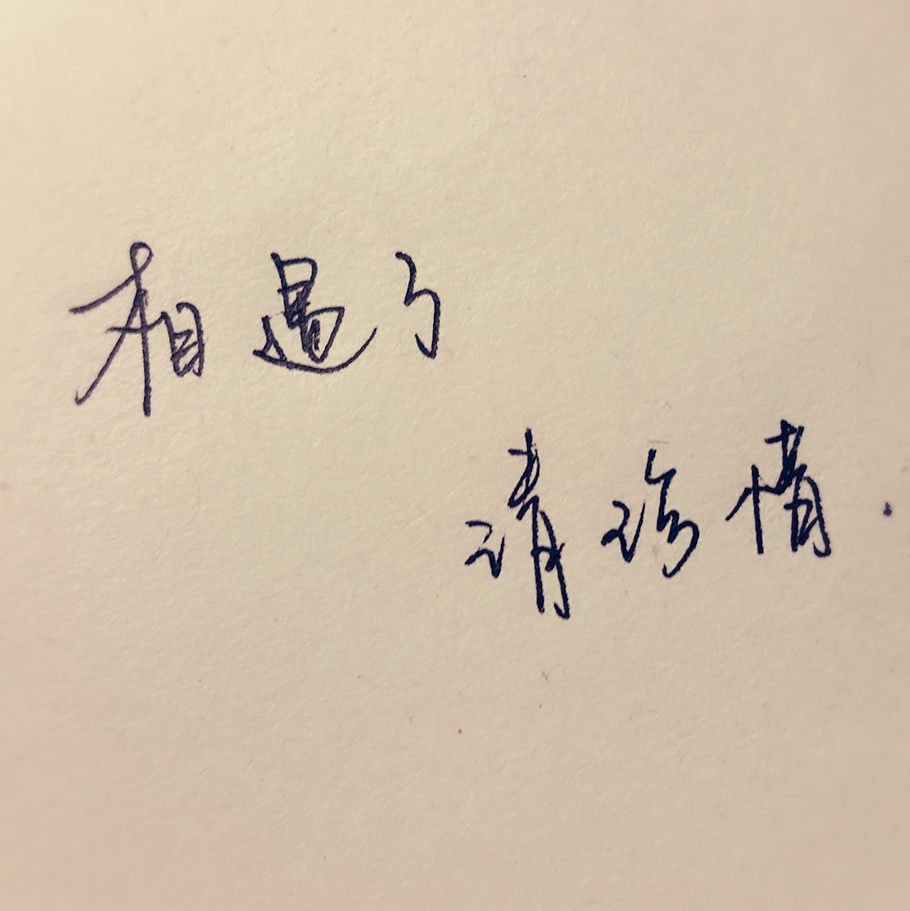 相遇了
请珍惜.